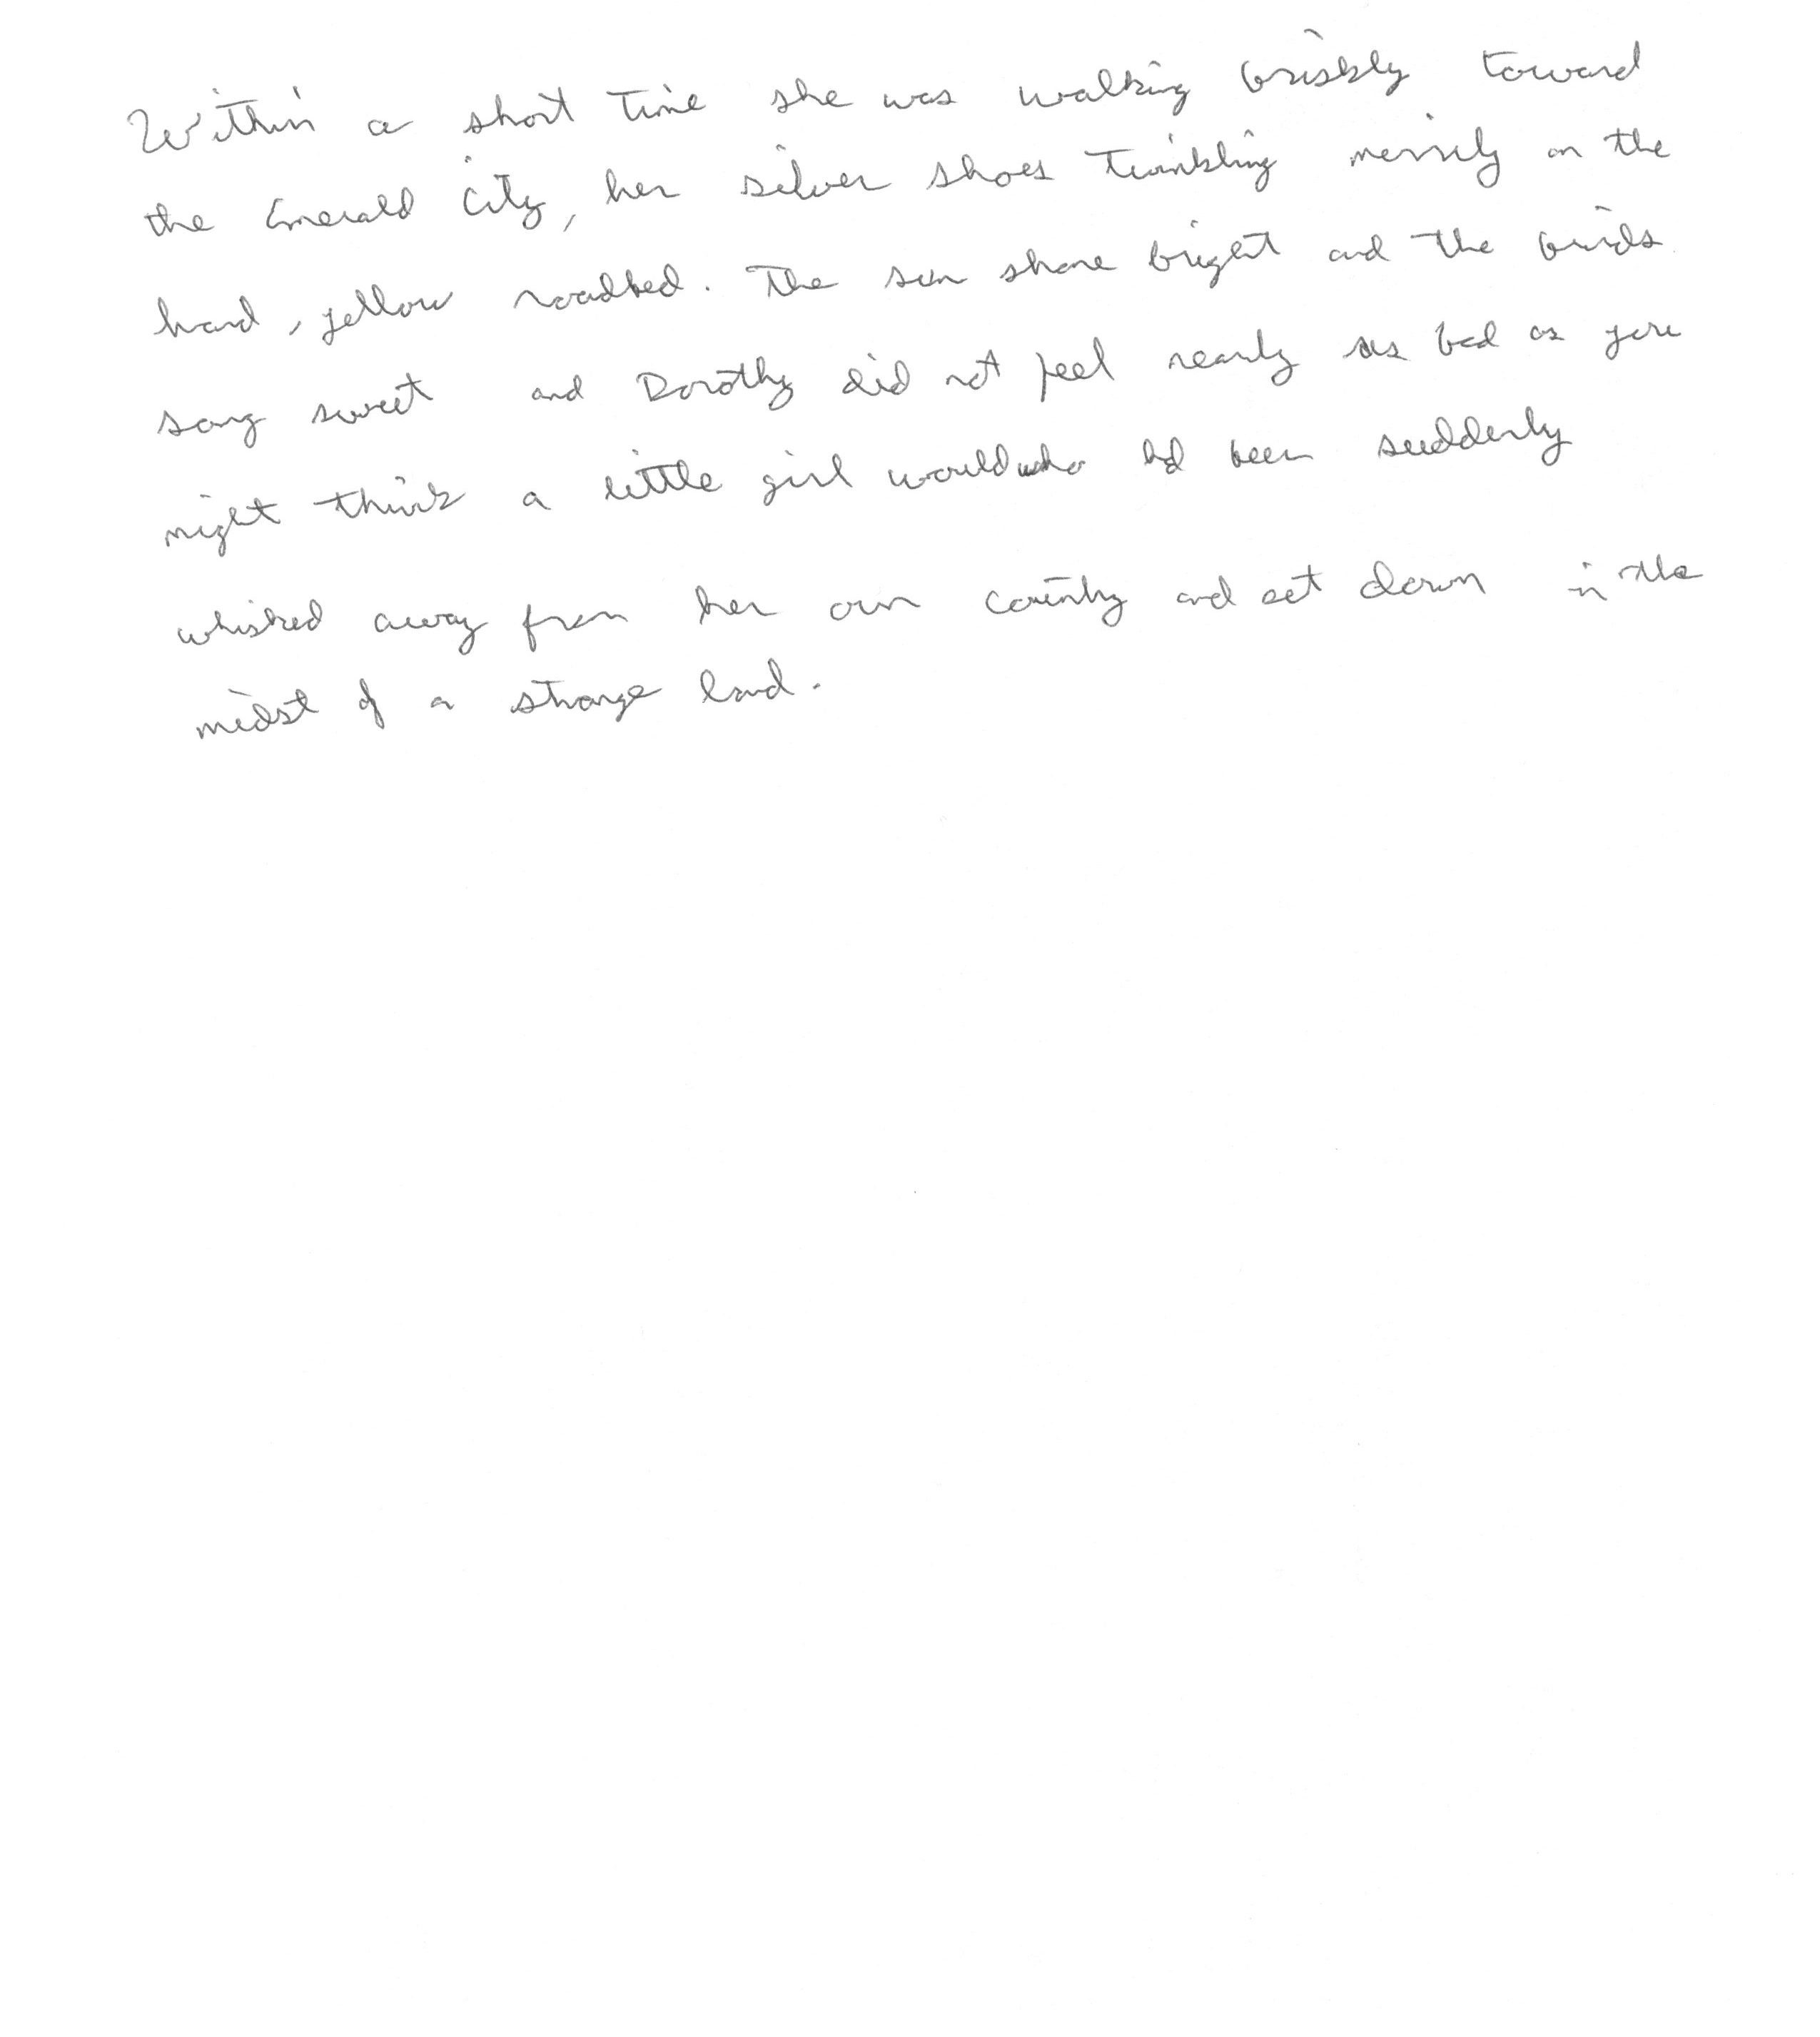 Within a short time she was walking briskly toward
the Emerald City, her silver shoes twinkling merrily on the
hard, yellow roadbed. The sun shone bright and the birds
sang sweet and Dorothy did not feel nearly as bad as you
might think a little girl would who had been suddenly
whisked away from her own country and set down in the
midst of a strange land.